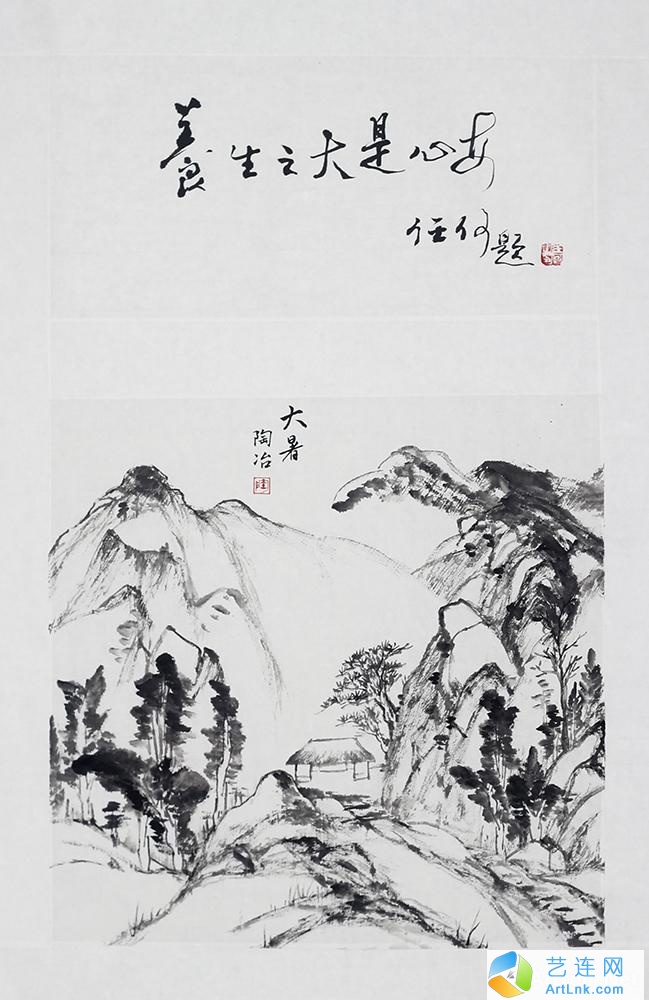 養生之大是心安
任何題
大暑
陶冶
艺连网
ArtLnk.com